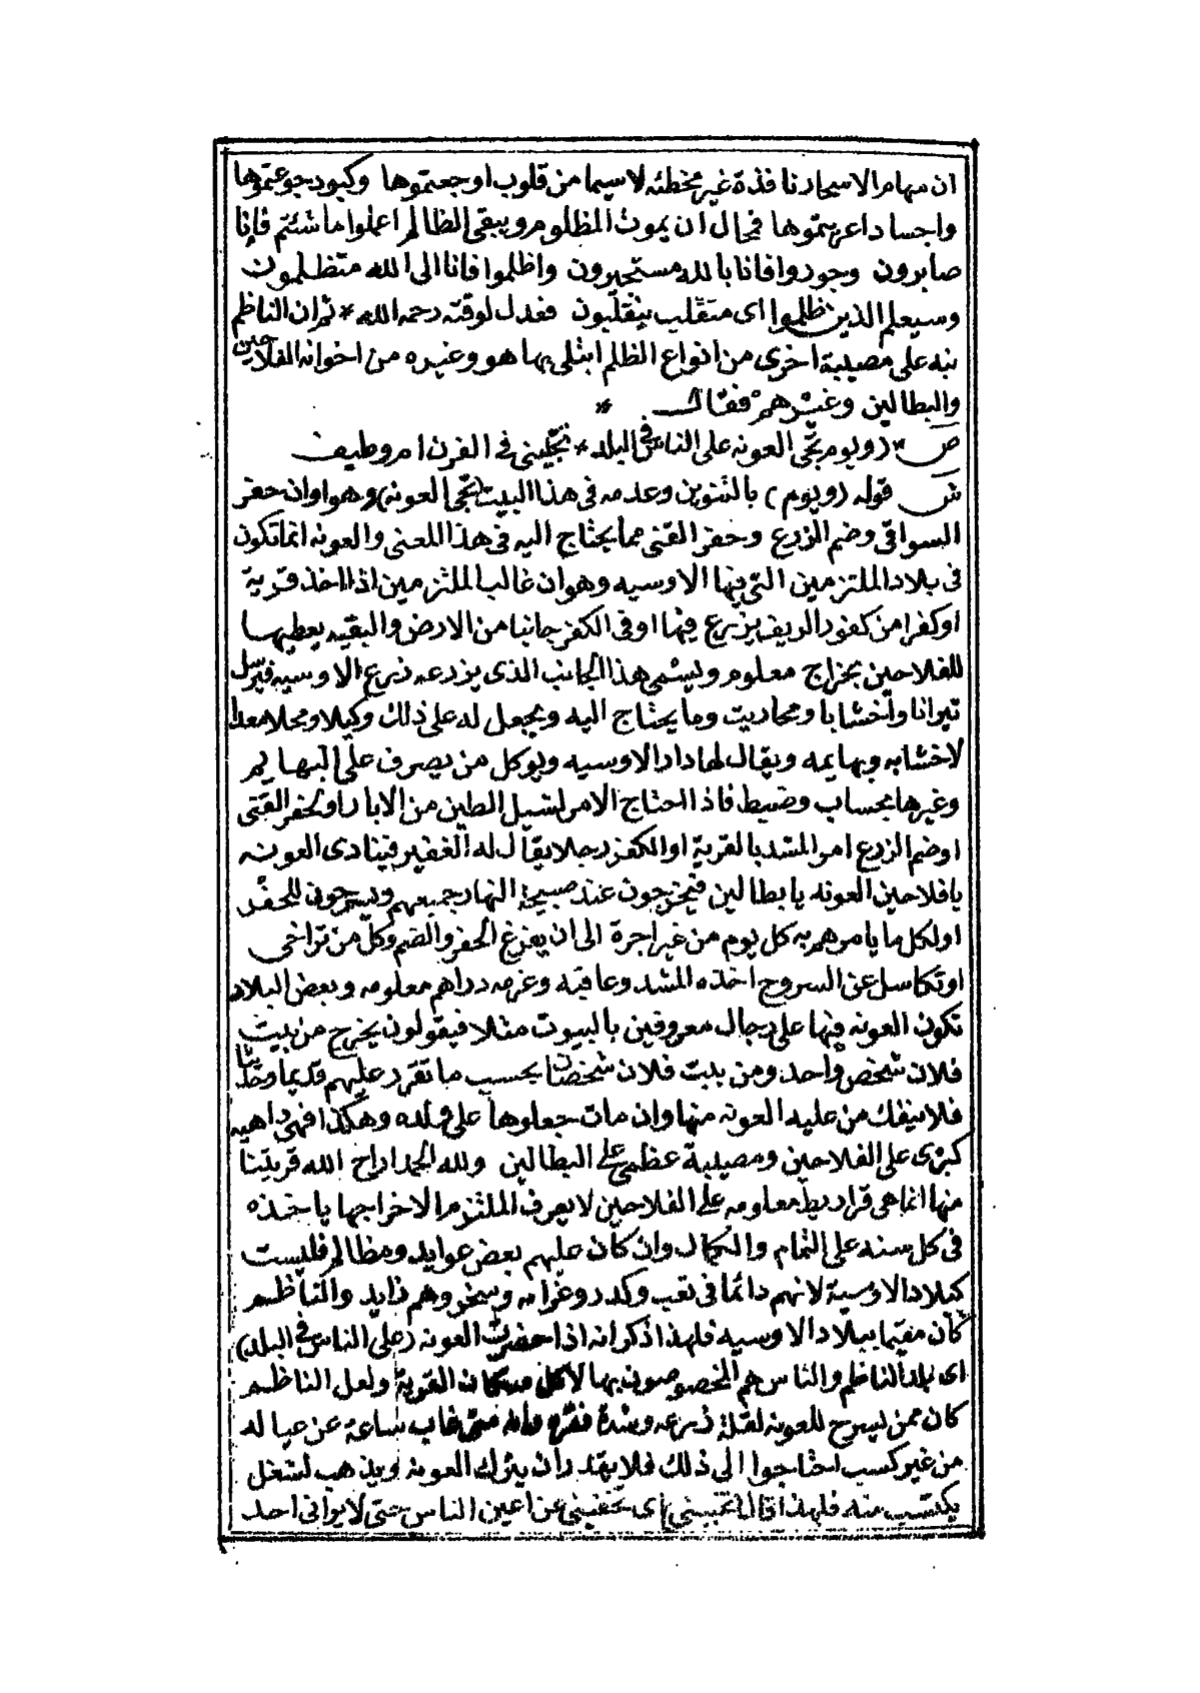 ان سهام الاسحار نافذة غير مخطئه لاسيما من قلوب اوجعتموها وكبود جوعتموها
واجساد اعريتموها فمحال ان يموت المظلوم ويبقى الظالم اعملوا ما شئتم فإنا
صابرون وجوروا فانا بالله مستجيرون واظلموا فانا الى الله متظلمون
وسيعلم الذين ظلموا اى منقلب ينقلبون فعدل لوقته رحمه الله * ثم ان الناظم
نبه على مصيبة اخرى من انواع الظلم ابتلى بها هو وغيره من اخوانه الفلاحين
والبطالين وغيرهم فقال *
ص * (ويوم تجى العونه على الناس فى البلد * تخبينى فى الفرن ام وطيف
ش قوله (ويوم) بالتنوين وعدمه فى هذا البيت (تجى العونه) وهو اوان حفر
السواقى وضم الزرع وحفر القنى مما يحتاج اليه فى هذا المعنى والعونه انما تكون
فى بلاد الملتزمين التى فيها الاوسيه وهو ان غالب الملتزمين اذا اخذ قرية
او كفرا من كفور الريف يزرع فيها او فى الكفر جانبا من الارض والبقيه يعطيها
للفلاحين بخراج معلوم ويسمى هذا الجانب الذى يزرعه زرع الاوسيه فيرسل
ثيرانا واخشابا ومحاريت وما يحتاج اليه ويجعل له على ذلك وكيلا ومحلا معدا
لاخشابه وبهايمه ويقال لها دار الاوسيه ويوكل من يصرف على البهايم
وغيرها بحساب وضبط فاذا احتاج الامر لشيل الطين من الابار او لحفر القنى
او ضم الزرع امر المشد بالقرية او الكفر رجلا يقال له الغفير فينادى العونه
يا فلاحين العونه يا بطالين فيخرجون عند صبيحة النهار جميعهم ويسرحون للحفر
او لكل ما يامرهم به كل يوم من غير اجرة الى ان يفرغ الحفر والضم وكل من تراخى
او تكاسل عن السروح اخذه المشد وعاقبه وغرمه دراهم معلومه وبعض البلاد
تكون العونه فيها على رجال معروفين بالبيوت مثلا فيقولون يخرج من بيت
فلان شخص واحد ومن بيت فلان شخصان بحسب ما تقرر عليهم قديما وحديثا
فلا ينفك من عليه العونه منها وان مات جعلوها على ولده وهكذا فهى داهيه
كبرى على الفلاحين ومصيبة عظمى على البطالين ولله الحمد اراح الله قريتنا
منها انما هى قراريط معلومه على الفلاحين لا يعرف الملتزم الا خراجها ياخذه
فى كل سنه على التمام والكمال وان كان عليهم بعض عوايد ومظالم فليست
كبلاد الاوسية لانهم دائما فى تعب وكدر وغرامه وسخر وهم زايد والناظم
كان مقيما ببلاد الاوسيه فلهذا ذكر انه اذا حضرت العونه (على الناس فى البلد)
اى بلد الناظم والناس هم المخصوصون بها لا كل سكان القرية ولعل الناظم
كان ممن يسرح للعونه لقلة زرعه وشدة فقره وانه متى غاب ساعة عن عياله
من غير كسب احتاجوا الى ذلك فلا يقدر ان يترك العونه ويذهب لشغل
يكتسب منه فلهذا قال (تخبينى) اى تخفينى عن اعين الناس حتى لا يرانى احد